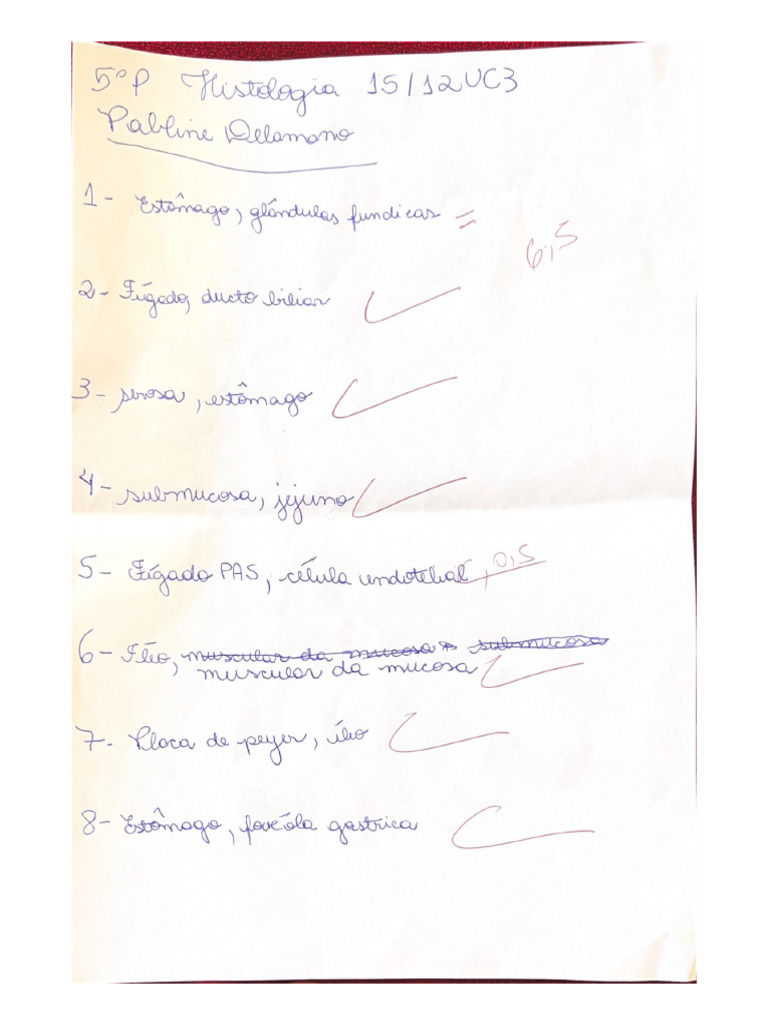 5ºP Histologia 15/12 UC3
Pabline Delamano
1- Estômago, glândulas fundicas =
6,5
2- Fígado, ducto biliar
3- serosa, estômago
4- submucosa, jejuno
5- Fígado PAS, célula endotelial 0,5
6- Íleo, muscular da mucosa submucosa
muscular da mucosa
7- Placa de peyer, íleo
8- Estômago, fovéola gastrica